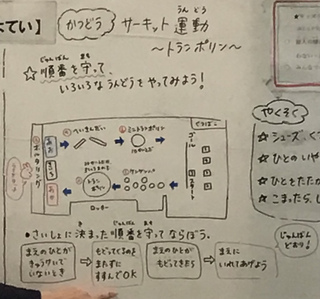 てい】
かつどう
サーキット運動
うんどう
〜トランポリン〜
じゅんばん まも
☆順番を守って、
いろいろなうんどうをやってみよう！
へいきんだい
ミニトランポリン
ゴール
スタート
ボルダリング
あお
きいろ
あか
トランポリン
ロッカー
やくそく
☆シューズ、く
☆ひとのいや
☆ひとをたた
☆こまったら、し
じゅんばん まも
•さいしょに決まった順番を守ってならぼう。
じゅんばん
どおり！
まえのひとが
きゅうけいで
いないとき
もどってくるのを
またずに
すすんでOK
まえのひとが
もどってきたら
まえに
いれてあげよう